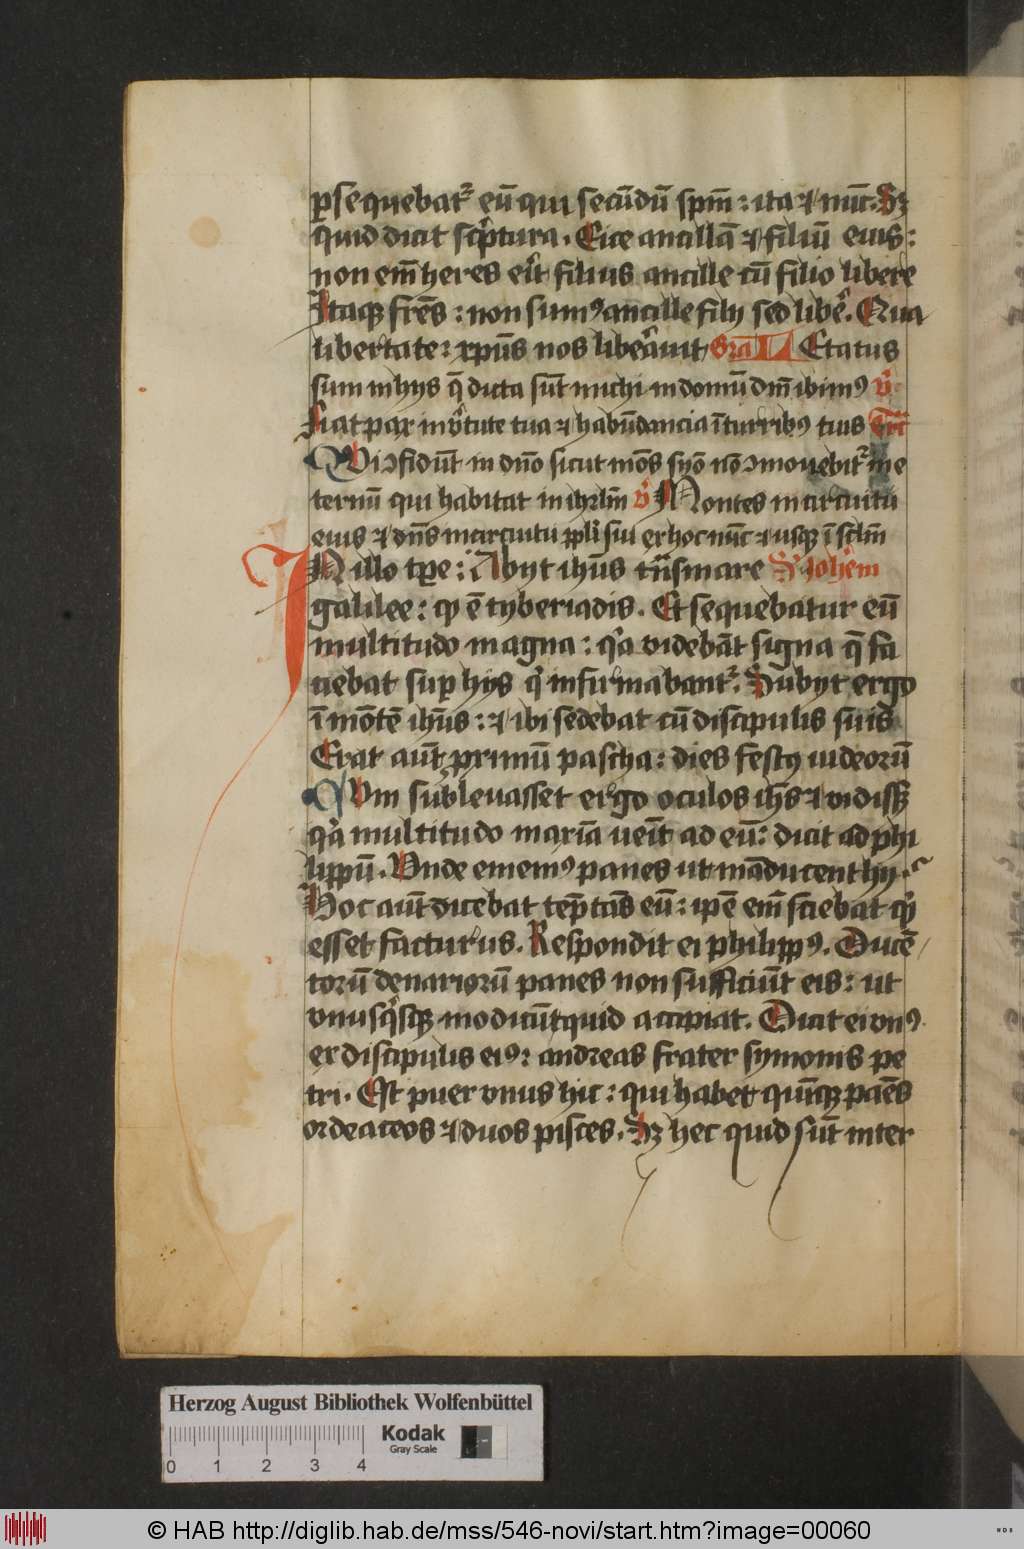 ꝑsequebat᷑ eū qui secūdū spm̄: ita ⁊ nūc. Sꝫ
quid dicit scͥptura. Eice ancillā ⁊ filiū eius:
non em̄ heres erit filius ancille cū filio libere
Itaqꝫ fr̄es: non sumꝰ ancille filij sed libe᷑. Qua
libertate: xp̄us nos libe᷑auit Gra᷑ Letatus
sum in hijs q̄ dicta sūt michi in domū dn̄i ibimꝰ v᷑
Fiat pax in v᷑tute tua ⁊ habūdancia ī turribꝰ tuis Tra᷑
Qui ꝯfidūt in dn̄o sicut mōs syō nō ꝯmouebit᷑ in e
ternū qui habitat in ihrlm̄ v᷑ Montes in circuitu
eius ⁊ dn̄s in circuitu ppl̓i sui ex hoc nūc ⁊ usqꝫ ī sc̄lm̄
IN illo tꝑe: Abijt ihūs trn̄s mare S᷑ Johe᷑m
galilee: qͥ ē tyberiadis. Et sequebatur eū
multitudo magna: qͣ videbāt signa q̄ fa
ciebat suꝑ hijs qͥ infirmabant᷑. Subijt ergo
ī mōtē ihūs: ⁊ ibi sedebat cū discipulis suis
Erat aūt ꝓximū pascha: dies festꝰ iudeorū
Cum subleuasset ergo oculos ihs̄ ⁊ vidisset
qͣ multitudo maxīa uēit ad eū: dicit ad phi
lippū. Vnde ememꝰ panes ut māducent hij.
Hoc aūt dicebat tēptās eū: ipē em̄ sciebat qͥd
esset facturus. Respondit ei philippꝰ. Ducē
torū denariorū panes non sufficiūt eis: ut
vnusqͥsqꝫ modicūtquid accipiat. Dicit ei vnꝰ
ex discipulis eiꝰ: andreas frater symonis pe
tri. Est puer vnus hic: qui habet quīqꝫ paēs
ordeaceos ⁊ duos pisces. Sꝫ hec quid sūt inter
Herzog August Bibliothek Wolfenbüttel
Kodak
Gray Scale
0 1 2 3 4
© HAB http://diglib.hab.de/mss/546-novi/start.htm?image=00060